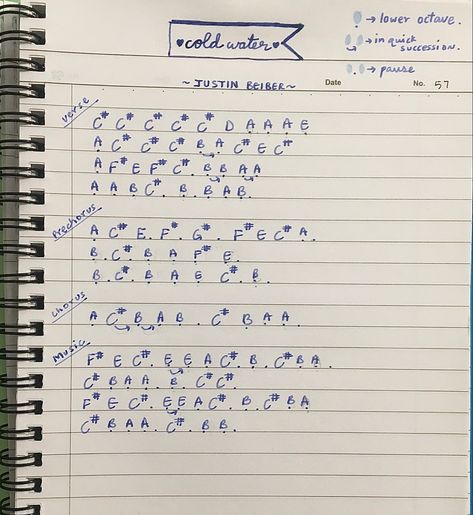 → lower octave.
♥cold water♥
→ in quick succession.
→ pause
~JUSTIN BEIBER~
Date
No. 57
Verse
C# C# C# C# C# D A A A E
A C# C# C# B A C# E C#
A F# E F# C# B B A A
A A B C# B. B A B.
Prechorus
A C# E. F#. G#. F# E C# A.
B. C#. B A F# E.
B. C#. B A E C#. B.
Chorus
A C# B A B. C# B A A.
Music
F# E C#. E E A C#. B. C# B A.
C# B A A. B. C# C#.
F# E C#. E E A C#. B. C# B A
C# B A A. C#. B B.